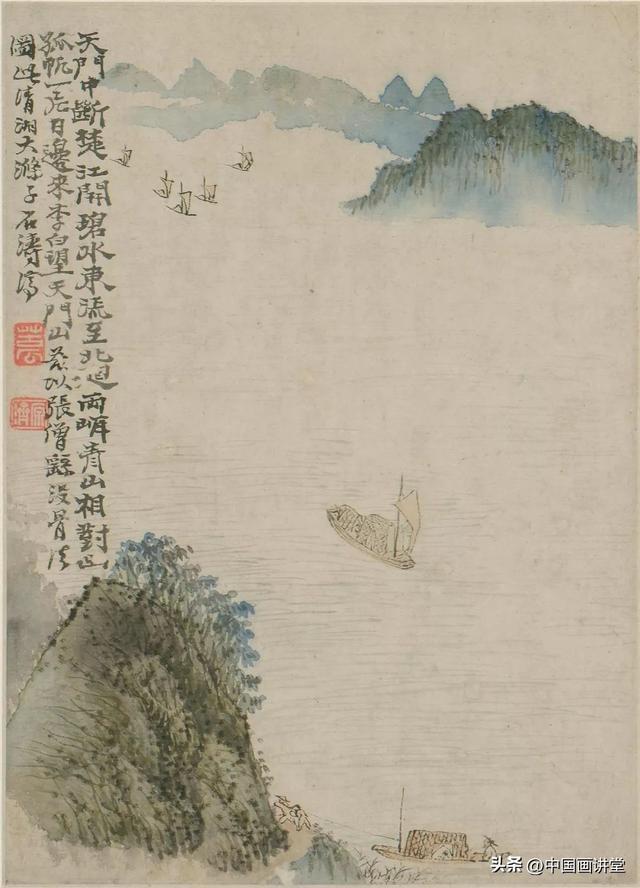 天門中斷楚江開碧水東流至北迴兩岸青山相對出
孤帆一片日邊來李白望天門山茲以張僧繇沒骨法
圖此清湘大滌子石濤濟
头条 @中国画讲堂